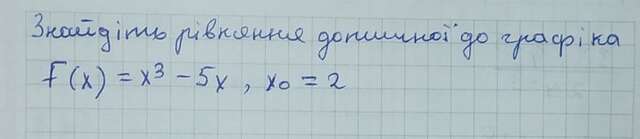 Знайдіть рівняння дотичної до графіка
f(x) = x³ - 5x, x₀ = 2